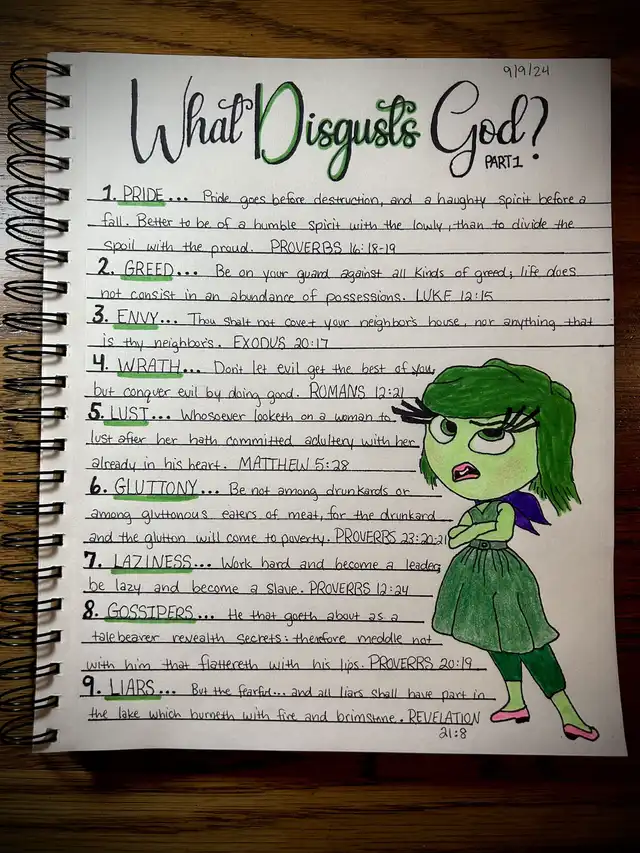 9/9/24
What Disgusts God?
PART 1
1. PRIDE... Pride goes before destruction, and a haughty spirit before a
fall. Better to be of a humble spirit with the lowly, than to divide the
spoil with the proud. PROVERBS 16:18-19
2. GREED... Be on your guard against all kinds of greed; life does
not consist in an abundance of possessions. LUKE 12:15
3. ENVY... Thou shalt not covet your neighbor's house, nor anything that
is thy neighbor's. EXODUS 20:17
4. WRATH... Don't let evil get the best of you,
but conquer evil by doing good. ROMANS 12:21
5. LUST... Whosoever looketh on a woman to
lust after her hath committed adultery with her
already in his heart. MATTHEW 5:28
6. GLUTTONY... Be not among drunkards or
among gluttonous eaters of meat, for the drunkard
and the glutton will come to poverty. PROVERBS 23:20-21
7. LAZINESS... Work hard and become a leader,
be lazy and become a slave. PROVERBS 12:24
8. GOSSIPERS... He that goeth about as a
talebearer revealth secrets: therefore meddle not
with him that flattereth with his lips. PROVERBS 20:19
9. LIARS... But the fearful... and all liars shall have part in
the lake which burneth with fire and brimstone. REVELATION
21:8